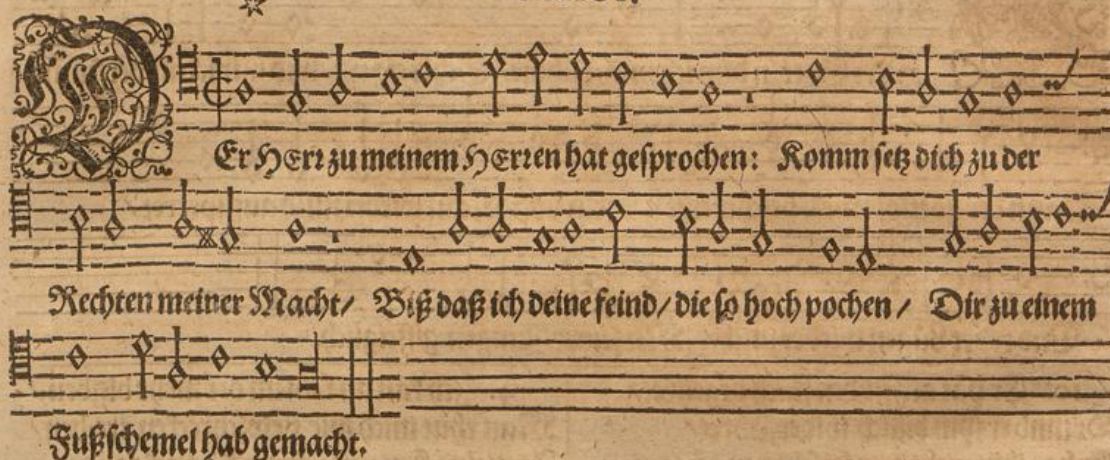 DEr HErr zu meinem HErren hat gesprochen: Komm setz dich zu der
Rechten meiner Macht/ Biß daß ich deine feind/ die so hoch pochen / Dir zu einem
Fußschemel hab gemacht.